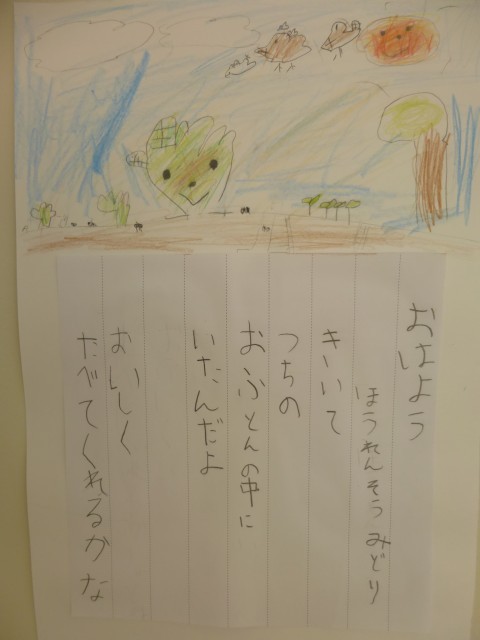 おはよう
ほうれんそう みどり
きいて
つちの
おふとんの中に
いたんだよ
おいしく
たべてくれるかな